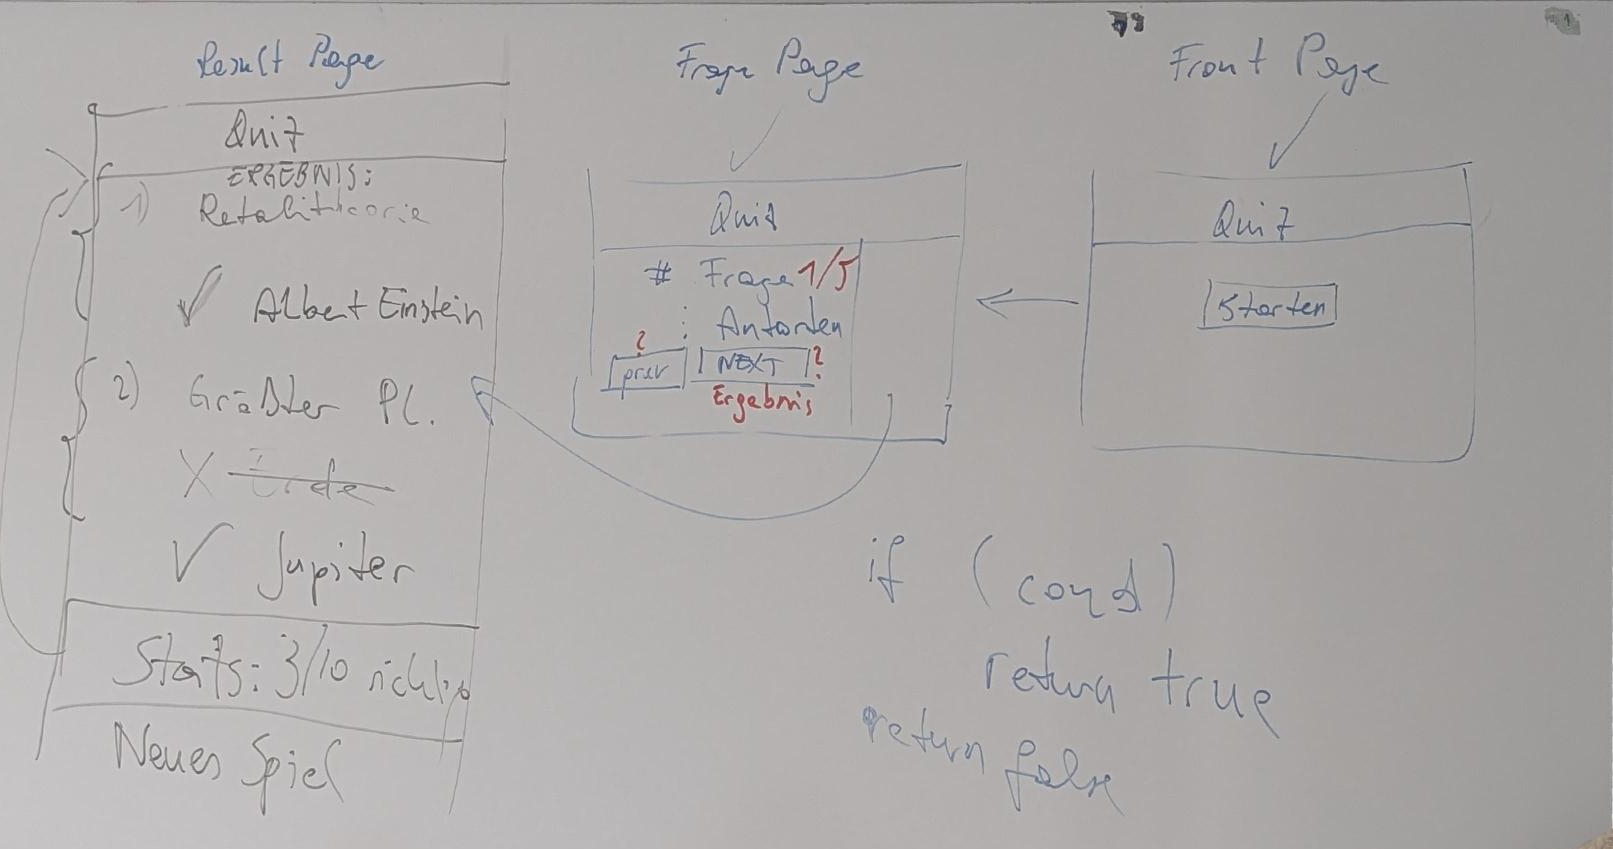 Result Page
Quiz
ERGEBNIS:
1) Retalittheorie
✓ Albert Einstein
2) Größter Pl.
X Erde
✓ Jupiter
Stats: 3/10 richtig
Neues Spiel
Frage Page
Quiz
# Frage 1/5
: Antorten
? prev NEXT ?
Ergebnis
Front Page
Quiz
Starten
if (cond)
return true
return false